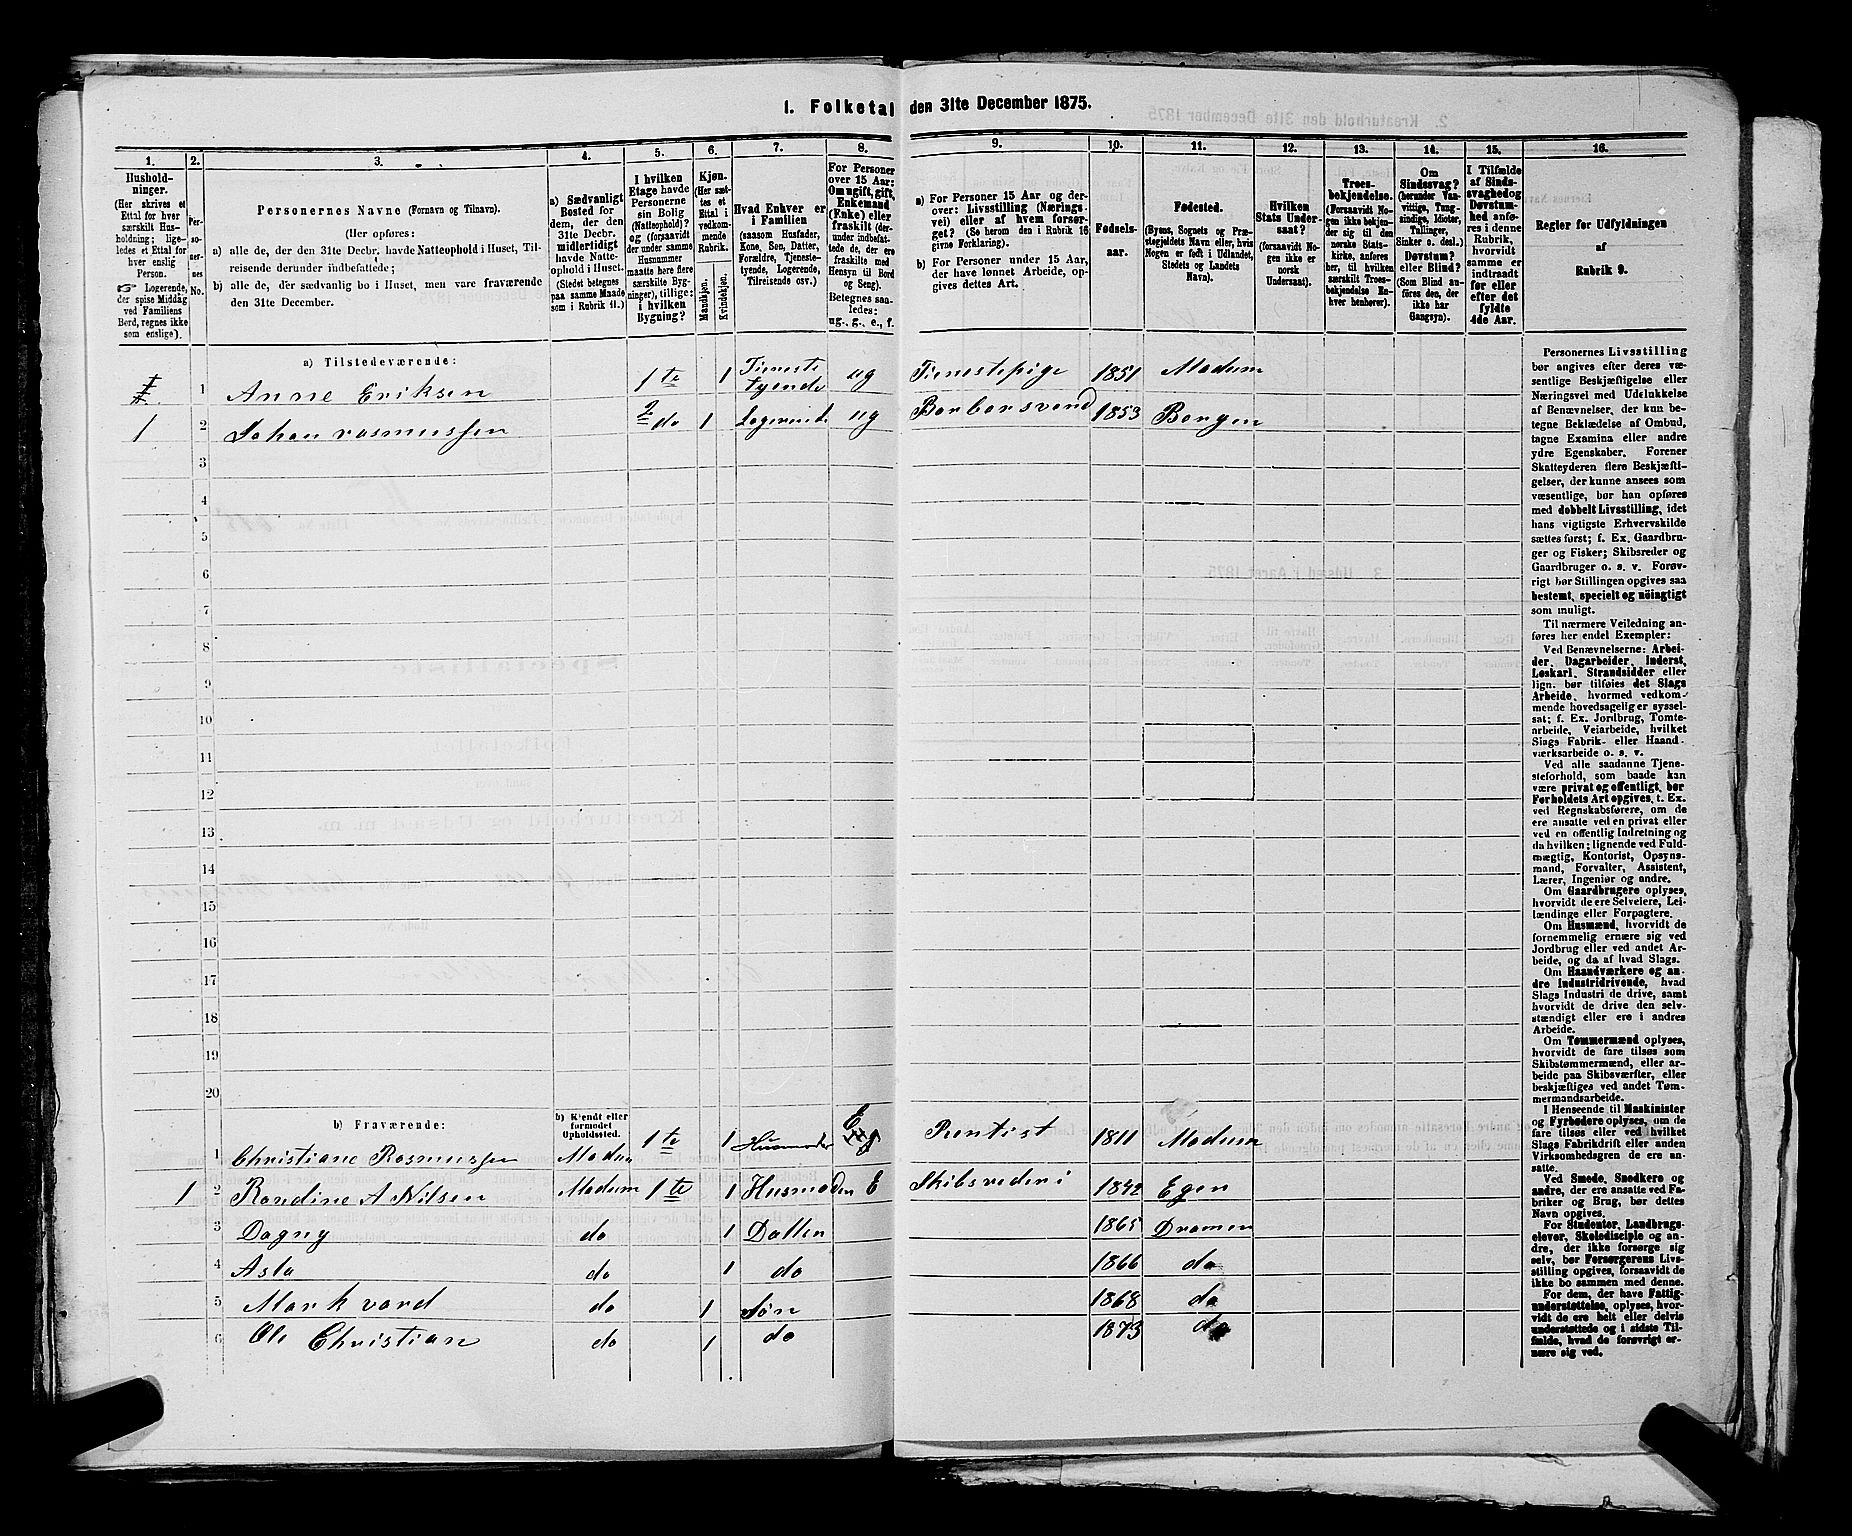 1. Folketal den 31te December 1875.
1. 2. 3. 4. 5. 6. 7. 8. 9. 10. 11. 12. 13. 14. 15. 16.
Hushold-
ninger.
(Her skrives et
Ettal for hver
særskilt Hus-
holdning; lige-
ledes et Ettal for
hver enslig
Person.
☞ Logerende,
der spise Middag
ved Familiens
Bord, regnes ikke
som enslige).
Per-
so-
ner-
nes
No.
Personernes Navne (Fornavn og Tilnavn).
(Her opføres:
a) alle de, der den 31te Decbr. havde Natteophold i Huset, Til-
reisende derunder indbefattede;
b) alle de, der sædvanlig bo i Huset, men vare fraværende
den 31te December.
a) Sædvanligt
Bosted for
dem, der den
31te Decbr.
midlertidigt
havde Natte-
ophold i Huset.
(Stedet betegnes
paa samme Maade
som i Rubrik 11.)
I hvilken
Etage havde
Personerne
sin Bolig
(Natteophold)?
og (forsaavidt
der under samme
Husnummer
maatte høre flere
særskilte Byg-
ninger), tillige:
i hvilken
Bygning?
Kjøn.
(Her sæt-
tes et
Ettal i
vedkom-
mende
Rubrik.
Mandkjøn.
Kvindekjøn.
Hvad Enhver er
i Familien
(saasom Husfader,
Kone, Søn, Datter,
Forældre, Tjeneste-
tyende, Logerende,
Tilreisende osv.)
For Personer
over 15 Aar:
Om ugift, gift,
Enkemand
(Enke) eller
fraskilt (der-
under indbefat-
tede de, der ere
fraskilte med
Hensyn til Bord
og Seng).
Betegnes saa-
ledes:
ug., g., e., f.
a) For Personer 15 Aar og der-
over: Livsstilling (Nærings-
vei) eller af hvem forsør-
get? (Se herom den i Rubrik 16
givne Forklaring).
b) For Personer under 15 Aar,
der have lønnet Arbeide, op-
gives dettes Art.
Fødsels-
aar.
Fødested.
(Byens, Sognets og Præ-
stegjeldets Navn eller, hvis
Nogen er født i Udlandet,
Stedets og Landets
Navn).
Hvilken
Stats Under-
saat?
(forsaavidt No-
gen ikke er
norsk
Undersaat).
Troes-
bekjendelse.
(Forsaavidt No-
gen ikke bekjen-
der sig til den
norske Stats-
kirke, anføres
her, til hvilken
særskilt Troes-
bekjendelse En-
hver henhører).
Om
Sindssvag?
(herunder Van-
vittige, Tung-
sindige, Idioter,
Tullinger,
Sinker o. desl.)
Døvstum?
eller Blind?
(Som Blind an-
føres den, der
ikke har
Gangsyn).
I Tilfælde
af Sinds-
svaghed og
Døvstum-
hed anfø-
res i denne
Rubrik,
hvorvidt
samme er
indtraadt
før eller
efter det
fyldte
4de Aar.
Regler for Udfyldningen
af
Rubrik 9.
a) Tilstedeværende:
1 Anne Eriksen 1te 1 Tieneste tyende ug Tienestepige 1851 Modum
1 2 Johan rasmussen 2 do 1 Logerende ug Barbersvend 1853 Bergen
3
4
5
6
7
8
9
10
11
12
13
14
15
16
17
18
19
20
b) Fraværende:
b) Kjendt eller
formodet
Opholdssted.
1 Christiane Rasmussen Modum 1te 1 Husmoder E Rentist 1811 Modum
1 2 Randine A Nilsen Modum 1te 1 Husmoden E Skibsrederi 1842 Eger
3 Dagny do 1 Datter 1865 Dramen
4 Asta do 1 do 1866 do
5 Markvard do 1 Søn 1868 do
6 Ole Christian do 1 do 1873 do
Personernes Livsstilling
bør angives efter deres væ-
sentlige Beskjæftigelse eller
Næringsvei med Udelukkelse
af Benævnelser, der kun be-
tegne Beklædelse af Ombud,
tagne Examina eller andre
ydre Egenskaber. Forener
Skatteyderen flere Beskjæfti-
gelser, der kunne ansees som
væsentlige, bør han opføres
med dobbelt Livsstilling, idet
hans vigtigste Erhvervskilde
sættes først; f. Ex. Gaardbru-
ger og Fisker; Skibsreder og
Gaardbruger o. s. v. Forøv-
rigt bør Stillingen opgives saa
bestemt, specielt og nöiagtigt
som muligt.
Til nærmere Veiledning an-
føres her endel Exempler:
Ved Benævnelserne: Arbei-
der, Dagarbeider, Inderst,
Løskarl, Strandsidder eller
lign. bør tilføies det Slags
Arbeide, hvormed vedkom-
mende hovedsagelig er syssel-
sat; f. Ex. Jordbrug, Tomte-
arbeide, Veiarbeide, hvilket
Slags Fabrik- eller Haand-
værksarbeide o. s. v.
Ved alle saadanne Tjene-
steforhold, som baade kan
være privat og offentligt, bør
Forholdets Art opgives, t. Ex.
ved Regnskabsførere, om de
ere ansatte ved en privat eller
ved en offentlig Indretning og
da hvilken; lignende ved Fuld-
mægtig, Kontorist, Opsyns-
mand, Forvalter, Assistent,
Lærer, Ingeniør og andre.
Om Gaardbrugere oplyses,
hvorvidt de ere Selveiere, Lei-
lændinge eller Forpagtere.
Om Husmænd, hvorvidt de
fornemmelig ernære sig ved
Jordbrug eller ved andet Ar-
beide, og da af hvad Slags.
Om Haandværkere og an-
dre industridrivende, hvad
Slags Industri de drive, samt
hvorvidt de drive den selv-
stændigt eller ere i andres
Arbeide.
Om Tømmermænd oplyses,
hvorvidt de fare tilsøs som
Skibstømmermænd, eller ar-
beide paa Skibsværfter, eller
beskjæftiges ved andet Tøm-
mermandsarbeide.
I Henseende til Maskinister
og Fyrbødere oplyses, om de
fare tilsøs eller ved hvilket
Slags Fabrikdrift eller anden
Virksomhedsgren de ere an-
satte.
Ved Smede, Snedkere og
andre, der ere ansatte ved Fa-
briker og Brug, bør dettes
Navn opgives.
For Studenter, Landbrugs-
elever, Skoledisciple og an-
dre, der ikke forsørge sig
selv, bør Forsørgerens Livs-
stilling opgives, forsaavidt de
ikke bo sammen med denne.
For dem, der have Fattig-
understøttelse, oplyses, hvor-
vidt de ere helt eller delvis
understøttede og i sidste Til-
fælde, hvad de forøvrigt er-
nære sig ved.